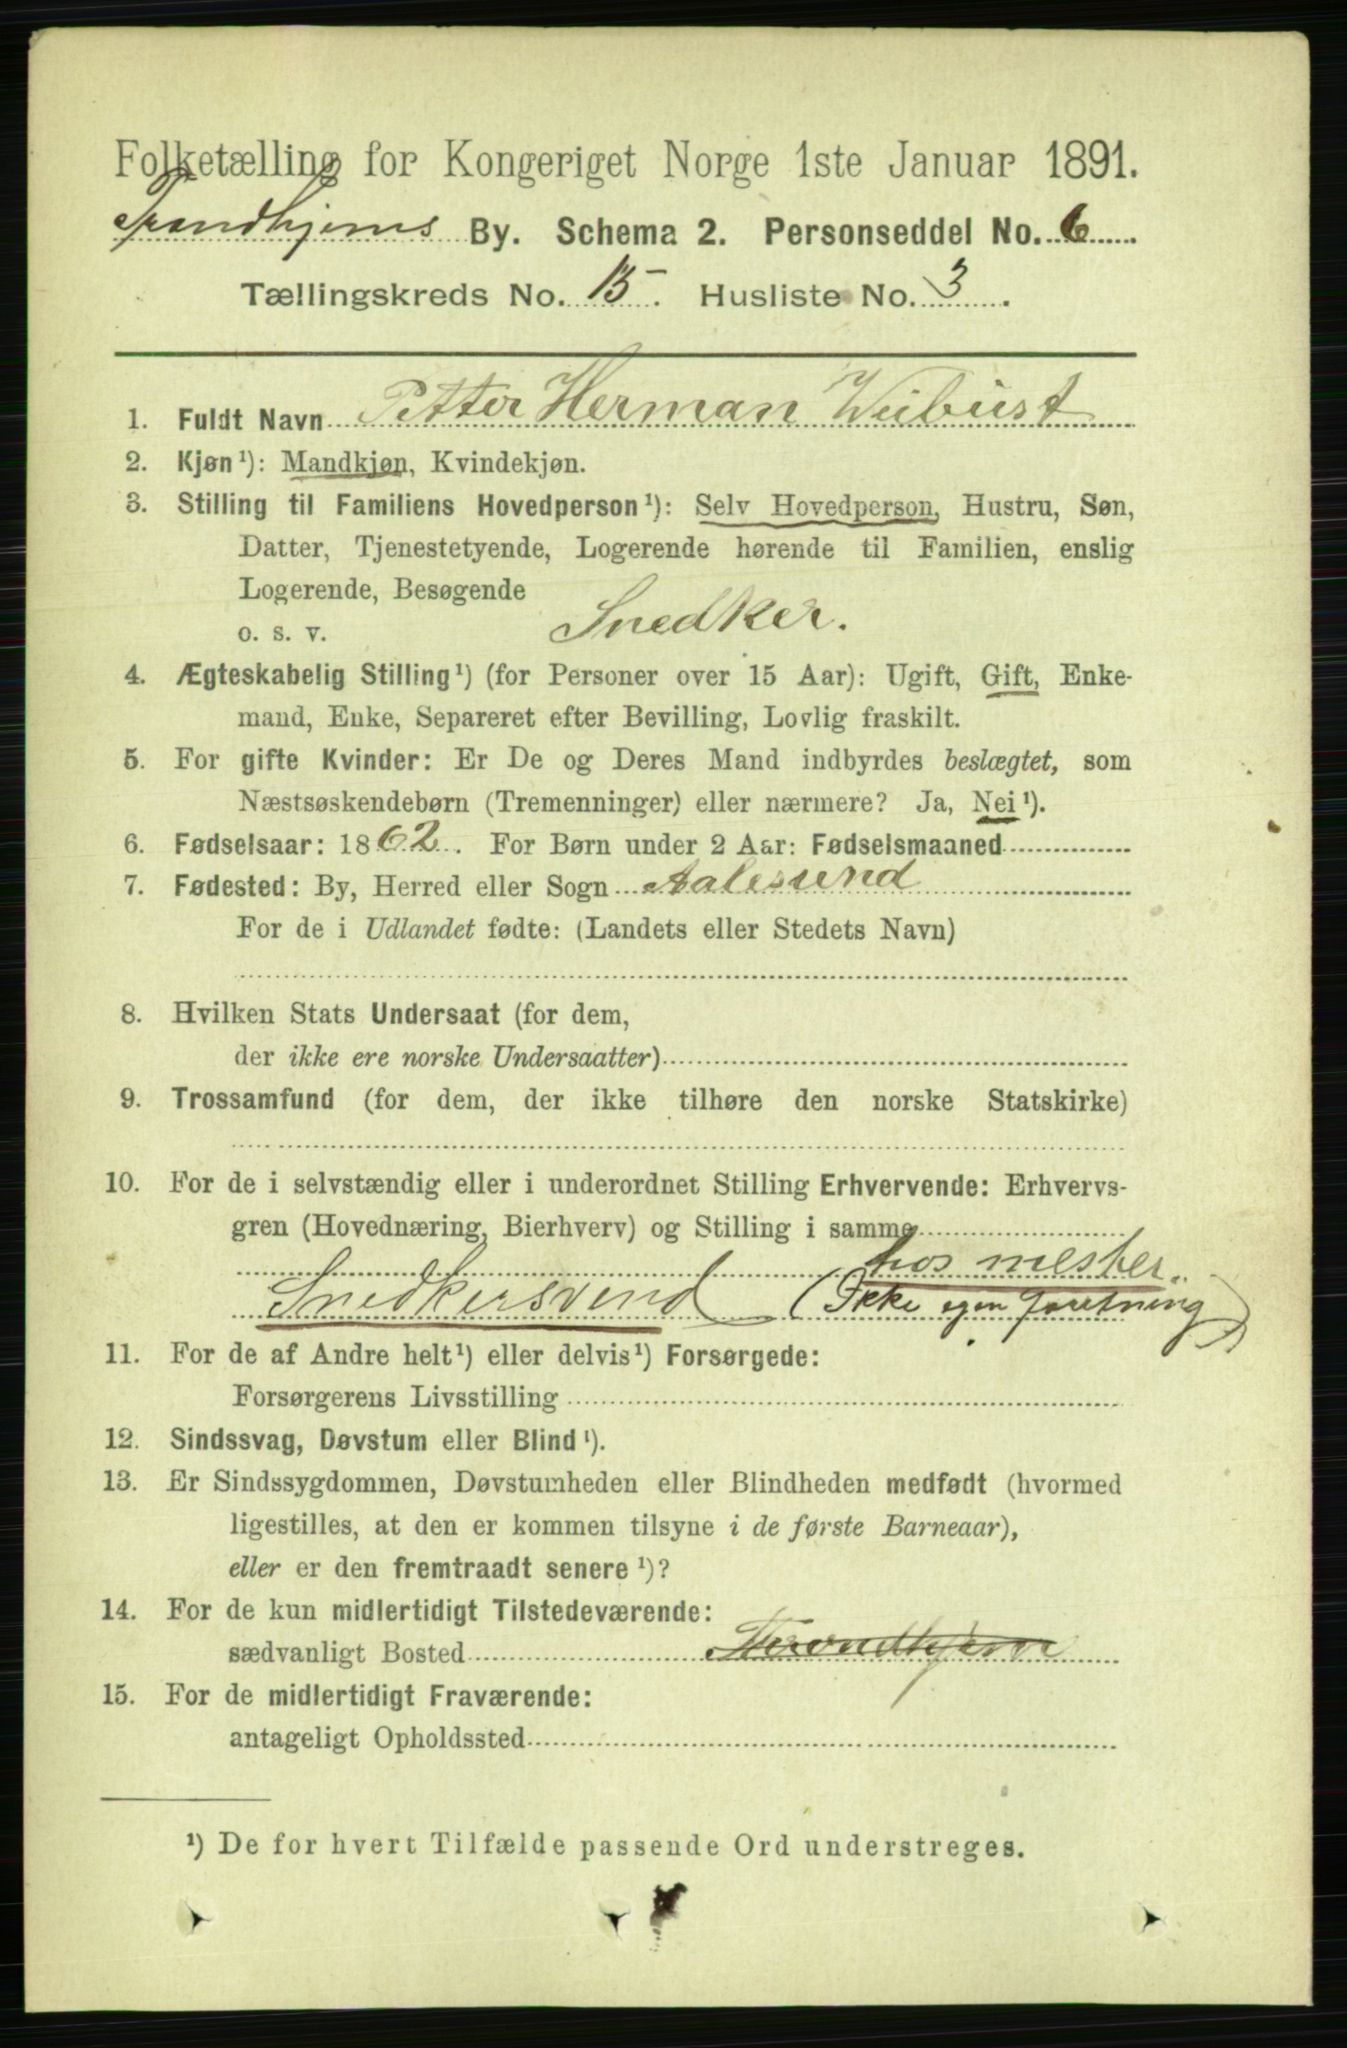 Folketælling for Kongeriget Norge 1ste Januar 1891.
Trondhjems By. Schema 2. Personseddel No. 6
Tællingskreds No. 15. Husliste No. 3.
1. Fuldt Navn Petter Herman Weibust
2. Kjøn¹): Mandkjøn, Kvindekjøn.
3. Stilling til Familiens Hovedperson¹): Selv Hovedperson, Hustru, Søn,
Datter, Tjenestetyende, Logerende hørende til Familien, enslig
Logerende, Besøgende
o. s. v. Snedker.
4. Ægteskabelig Stilling¹) (for Personer over 15 Aar): Ugift, Gift, Enke-
mand, Enke, Separeret efter Bevilling, Lovlig fraskilt.
5. For gifte Kvinder: Er De og Deres Mand indbyrdes beslægtet, som
Næstsøskendebørn (Tremenninger) eller nærmere? Ja, Nei¹).
6. Fødselsaar: 1862. For Børn under 2 Aar: Fødselsmaaned
7. Fødested: By, Herred eller Sogn Aalesund
For de i Udlandet fødte: (Landets eller Stedets Navn)
8. Hvilken Stats Undersaat (for dem,
der ikke ere norske Undersaatter)
9. Trossamfund (for dem, der ikke tilhøre den norske Statskirke)
10. For de i selvstændig eller i underordnet Stilling Erhvervende: Erhvervs-
gren (Hovednæring, Bierhverv) og Stilling i samme
hos mester.
Snedkersvend (Ikke egen foretning)
11. For de af Andre helt¹) eller delvis¹) Forsørgede:
Forsørgerens Livsstilling
12. Sindssvag, Døvstum eller Blind¹).
13. Er Sindssygdommen, Døvstumheden eller Blindheden medfødt (hvormed
ligestilles, at den er kommen tilsyne i de første Barneaar),
eller er den fremtraadt senere¹)?
14. For de kun midlertidigt Tilstedeværende:
sædvanligt Bosted
15. For de midlertidigt Fraværende:
antageligt Opholdssted
¹) De for hvert Tilfælde passende Ord understreges.